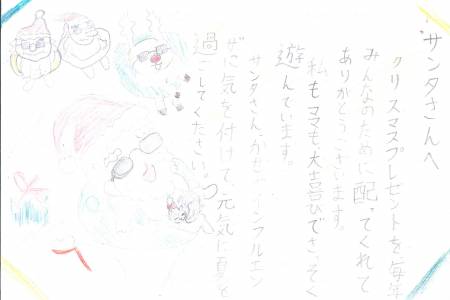 サンタさんへ
クリスマスプレゼントを毎年
みんなのために配ってくれて
ありがとうございます。
私もママも大喜びでさっそく
遊んでいます。
サンタさん、かぜやインフルエン
ザに気を付けて、元気に夏を
過ごしてください。